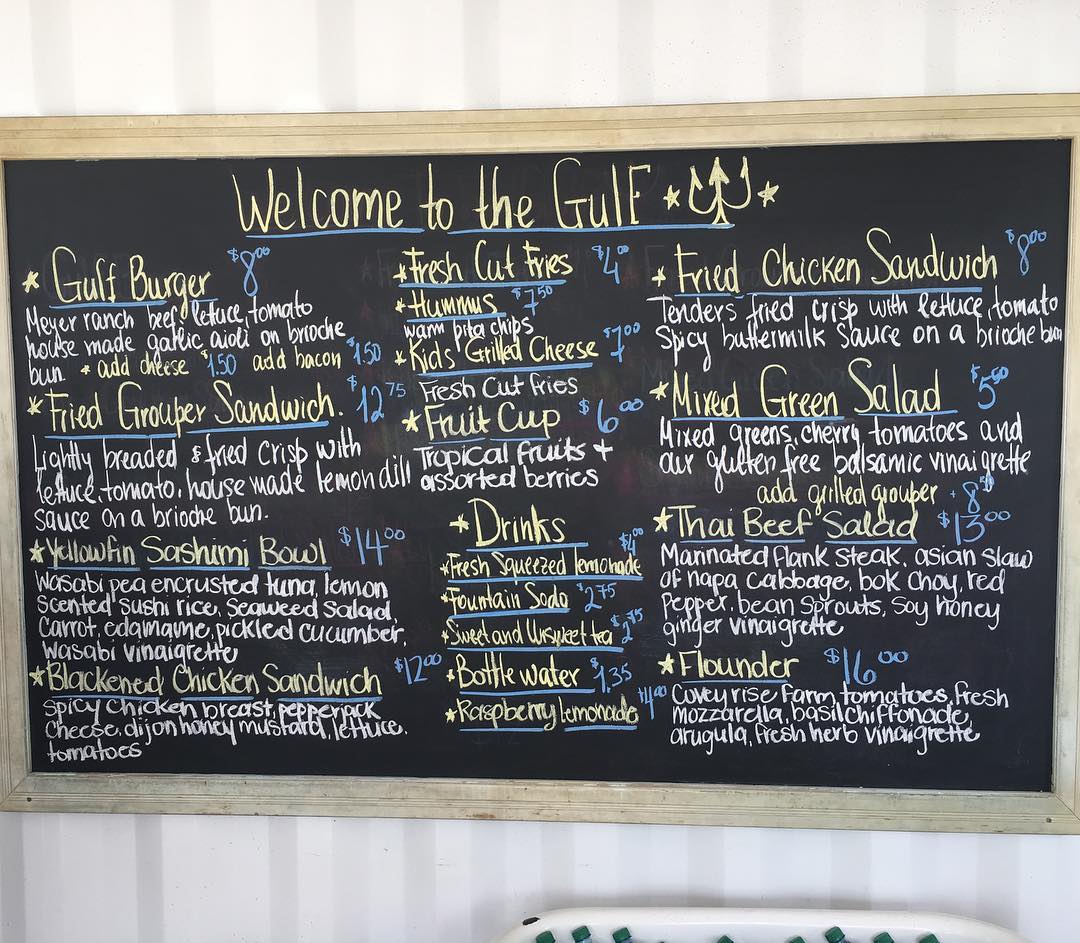 Welcome to the Gulf
Gulf Burger $8.00
Meyer ranch beef, lettuce, tomato
house made garlic aioli on brioche
bun. + add cheese $1.50 add bacon $1.50
Fried Grouper Sandwich. $12.75
Lightly breaded & fried crisp with
lettuce, tomato, house made lemon dill
sauce on a brioche bun.
Yellowfin Sashimi Bowl $14.00
Wasabi pea encrusted tuna, lemon
scented sushi rice, seaweed salad,
carrot, edamame, pickled cucumber,
wasabi vinaigrette
Blackened Chicken Sandwich $12.00
Spicy chicken breast, pepperjack
cheese, dijon honey mustard, lettuce,
tomatoes
Fresh Cut Fries $4.00
Hummus $7.50
warm pita chips
Kids' Grilled Cheese $7.00
Fresh Cut fries
Fruit Cup $6.00
Tropical fruits +
assorted berries
Drinks
Fresh Squeezed lemonade $4.00
Fountain Soda $2.75
Sweet and Unsweet tea $2.75
Bottle water $1.35
Raspberry lemonade $4.00
Fried Chicken Sandwich $8.00
Tenders fried crisp with lettuce, tomato
Spicy buttermilk sauce on a brioche bun
Mixed Green Salad $5.50
Mixed greens, cherry tomatoes and
our gluten free balsamic vinaigrette
add grilled grouper + 8.50
Thai Beef Salad $13.00
Marinated flank steak, asian slaw
of napa cabbage, bok choy, red
pepper, bean sprouts, soy honey
ginger vinaigrette
Flounder $16.00
Covey rise Farm tomatoes, fresh
mozzarella, basil chiffonade,
arugula, fresh herb vinaigrette